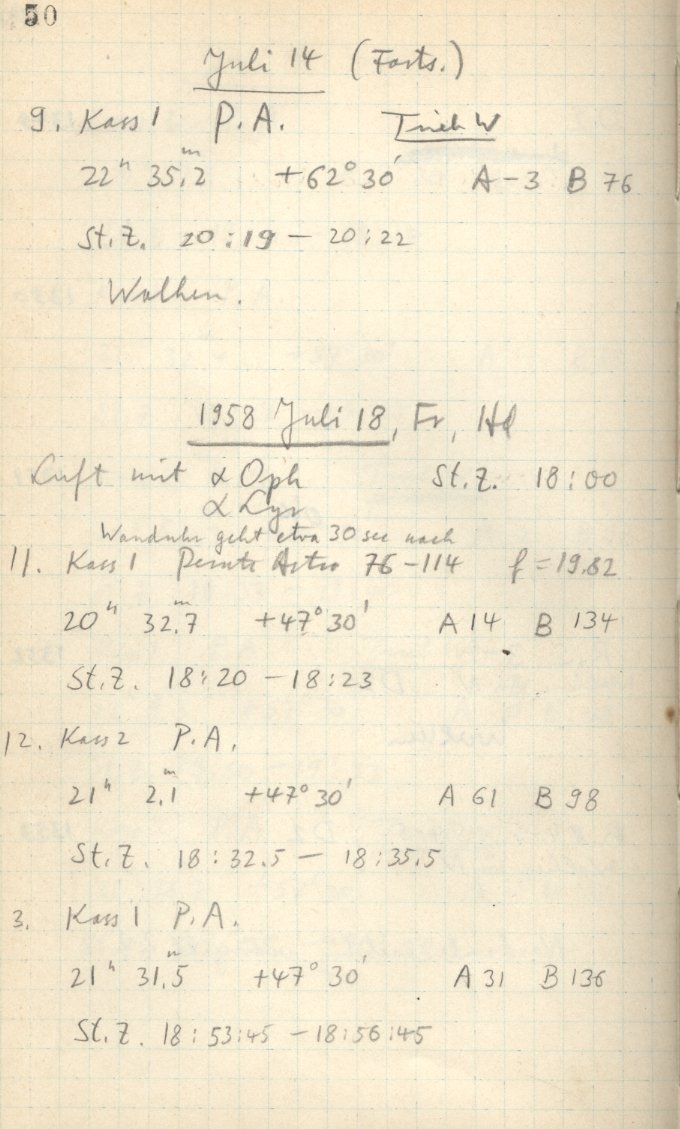 50
Juli 14 (Forts.)
9. Kass 1 P.A. Trieb W
22ʰ 35,ᵐ2 +62°30' A-3 B 76
St.Z. 20:19 - 20:22
Wolken.
1958 Juli 18, Fr, Hd
Luft mit α Oph St.Z. 18:00
α Lyr
Wanduhr geht etwa 30 sec nach
11. Kass 1 Perutz Astro 76-114 f=19,82
20ʰ 32,ᵐ7 +47°30' A 14 B 134
St.Z. 18:20 - 18:23
12. Kass 2 P.A.
21ʰ 2,ᵐ1 +47°30' A 61 B 98
St.Z. 18:32.5 - 18:35.5
3. Kass 1 P.A.
21ʰ 31,ᵐ5 +47°30' A 31 B 136
St.Z. 18:53:45 - 18:56:45